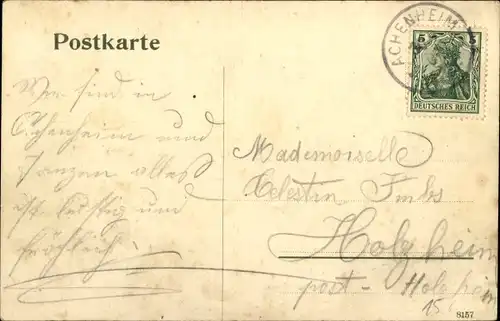 Postkarte
ACHENHEIM
5 5
DEUTSCHES REICH
Wir sind in
Achenheim und
tanzen alles
ist lustig und
fröhlich!
Mademoiselle
Celestin
Holzheim
post - Holzheim
15
8157